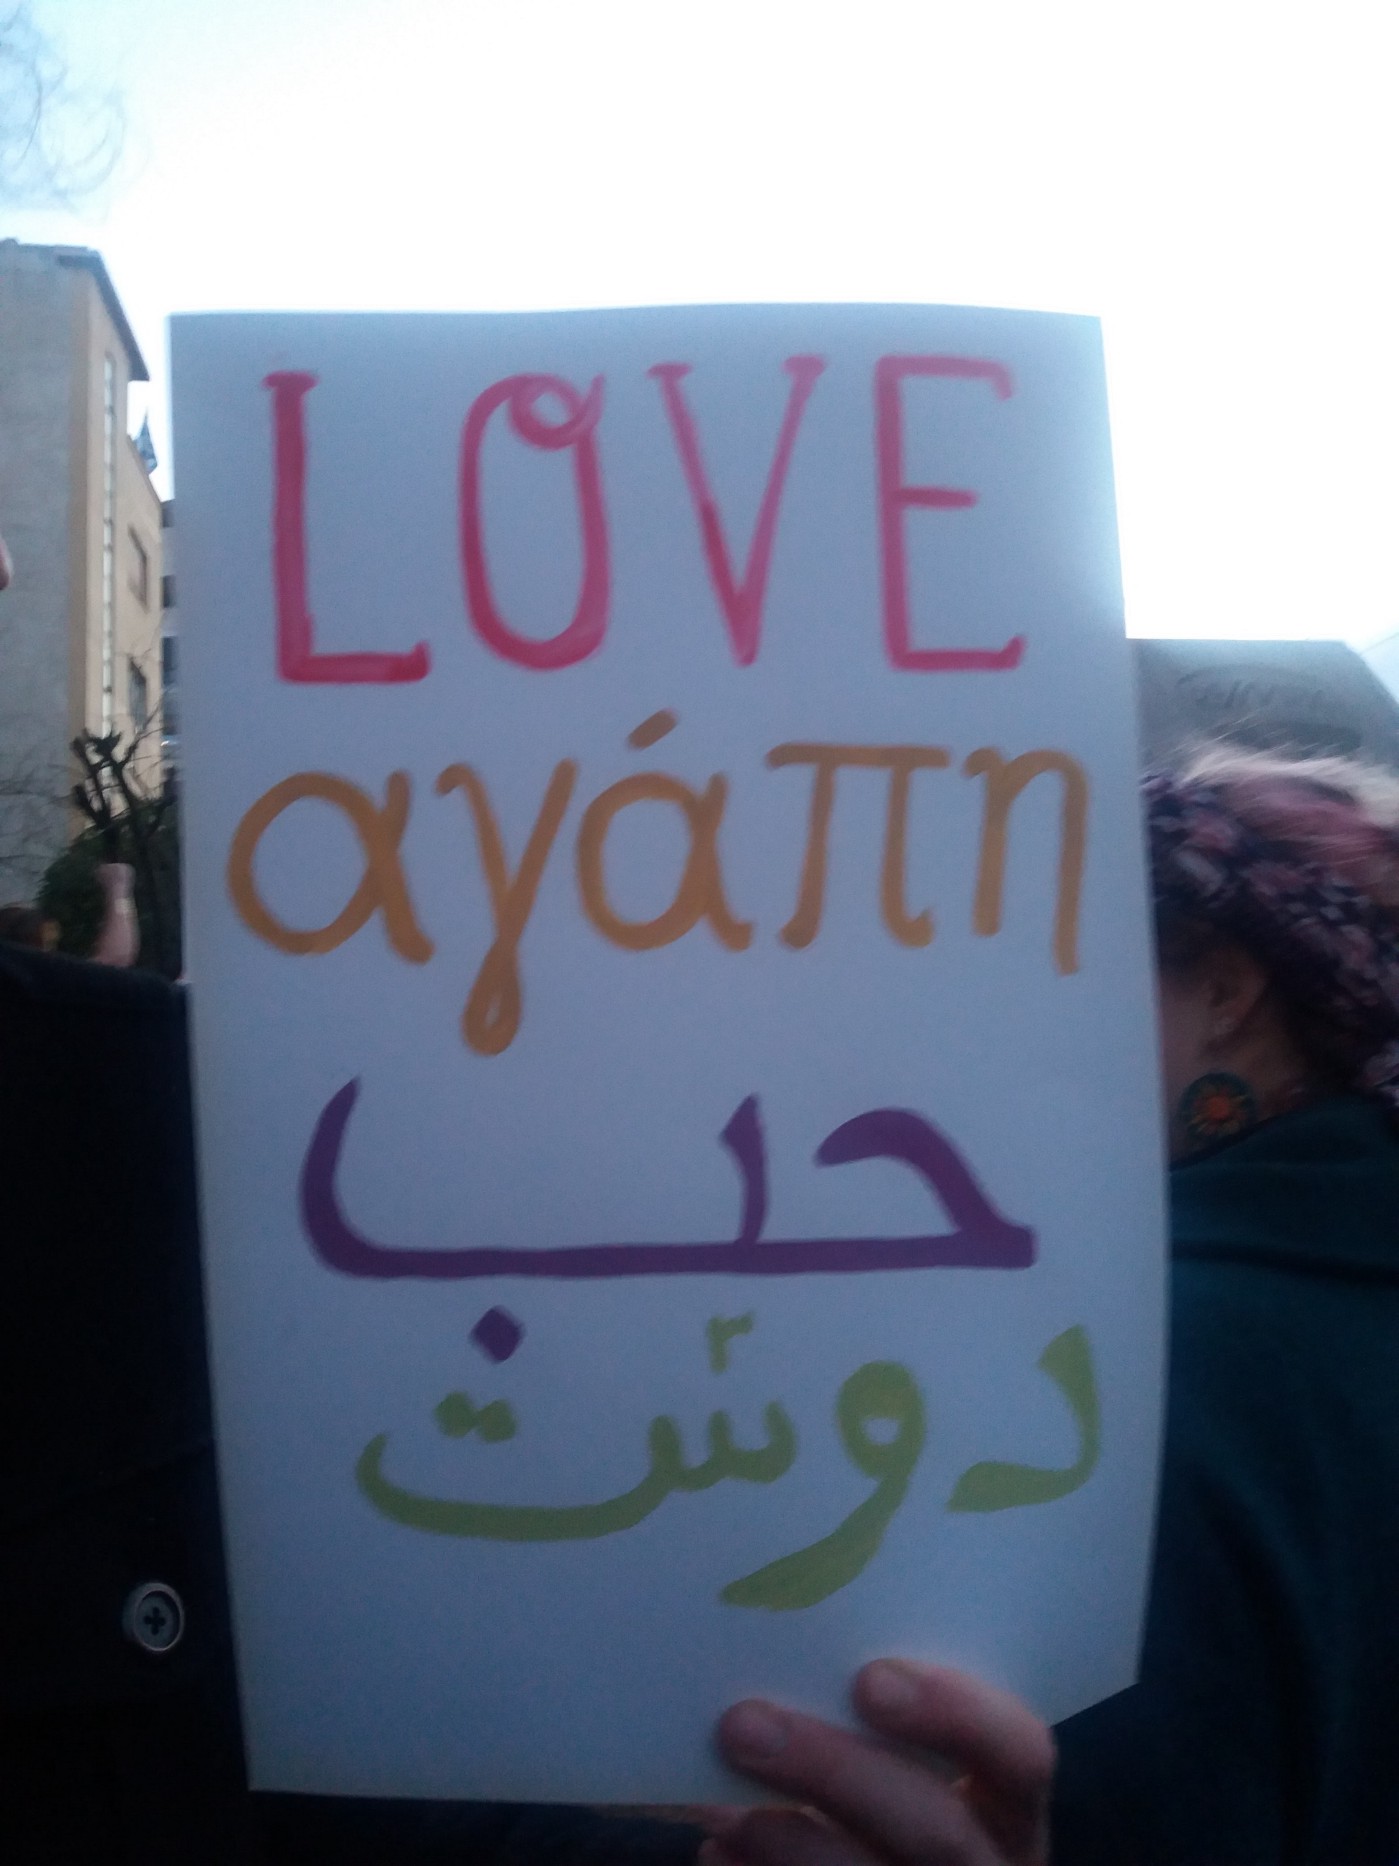 LOVE
αγάπη
حب
دوسْت